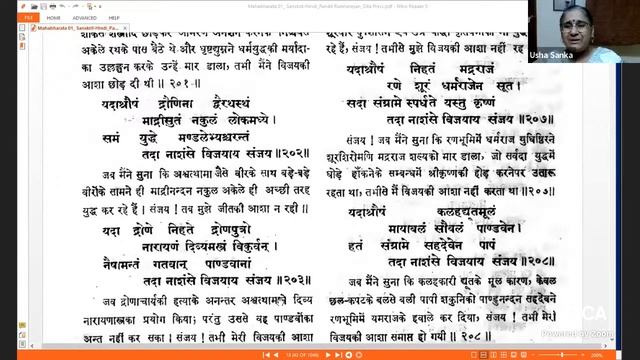 Mahabharata 01_ Sanskrit-Hindi_Pandit Ramnarayan_Gita Press.pdf - Nitro Reader 5
FILE HOME ADVANCED HELP
Mahabharata 01_ Sanskrit-Hindi_Pa...
Usha Sanka
अकेले रथके पास बैठे थे और धृष्टद्युम्नने धर्मयुद्धकी मर्यादा-
का उल्लङ्घन करके उन्हें मार डाला, तभी मैंने विजयकी
आशा छोड़ दी थी ॥ २०१ ॥
यदाश्रौषं द्रौणिना द्वैरथस्थं
माद्रीसुतं नकुलं लोकमध्ये।
समं युद्धे मण्डलेभ्यश्चरन्तं
तदा नाशंसे विजयाय संजय ॥२०२॥
जब मैंने सुना कि अश्वत्थामा जैसे वीरके साथ बड़े-बड़े
वीरोंके सामने ही माद्रीनन्दन नकुल अकेले ही अच्छी तरह
युद्ध कर रहे हैं। संजय ! तब मुझे जीतकी आशा न रही ॥
यदा द्रोणे निहते द्रोणपुत्रो
नारायणं दिव्यमस्त्रं विकुर्वन्।
नैषामन्तं गतवान् पाण्डवानां
तदा नाशंसे विजयाय संजय ॥२०३॥
जब द्रोणाचार्यकी हत्याके अनन्तर अश्वत्थामाने दिव्य
नारायणास्त्रका प्रयोग किया; परंतु उससे वह पाण्डवोंका
अन्त नहीं कर सका। संजय ! तभी मेरी विजयकी आशा
रहे हैं, संजय ! तभीसे मुझे विजयकी आशा नहीं रह
यदाश्रौषं निहतं मद्रराजं
रणे शूरं धर्मराजेन सूत।
सदा संग्रामे स्पर्धते यस्तु कृष्णं
तदा नाशंसे विजयाय संजय ॥२०७॥
संजय ! जब मैंने सुना कि रणभूमिमें धर्मराज युधिष्ठिरने
शूरशिरोमणि मद्रराज शल्यको मार डाला, जो सर्वदा युद्धमें
घोड़े हाँकनेके सम्बन्धमें श्रीकृष्णकी होड़ करनेपर उतारू
रहता था, तभीसे मैं विजयकी आशा नहीं करता था ॥२०७॥
यदाश्रौषं कलहद्यूतमूलं
मायाबलं सौबलं पाण्डवेन।
हतं संग्रामे सहदेवेन पापं
तदा नाशंसे विजयाय संजय ॥२०८॥
जब मैंने सुना कि कलहकारी द्यूतके मूल कारण, केवल
छल-कपटके बलसे बली पापी शकुनिको पाण्डुनन्दन सहदेवने
रणभूमिमें यमराजके हवाले कर दिया, संजय ! तभी मेरी
विजयकी आशा समाप्त हो गयी ॥ २०८ ॥
Powered by Zoom
200%